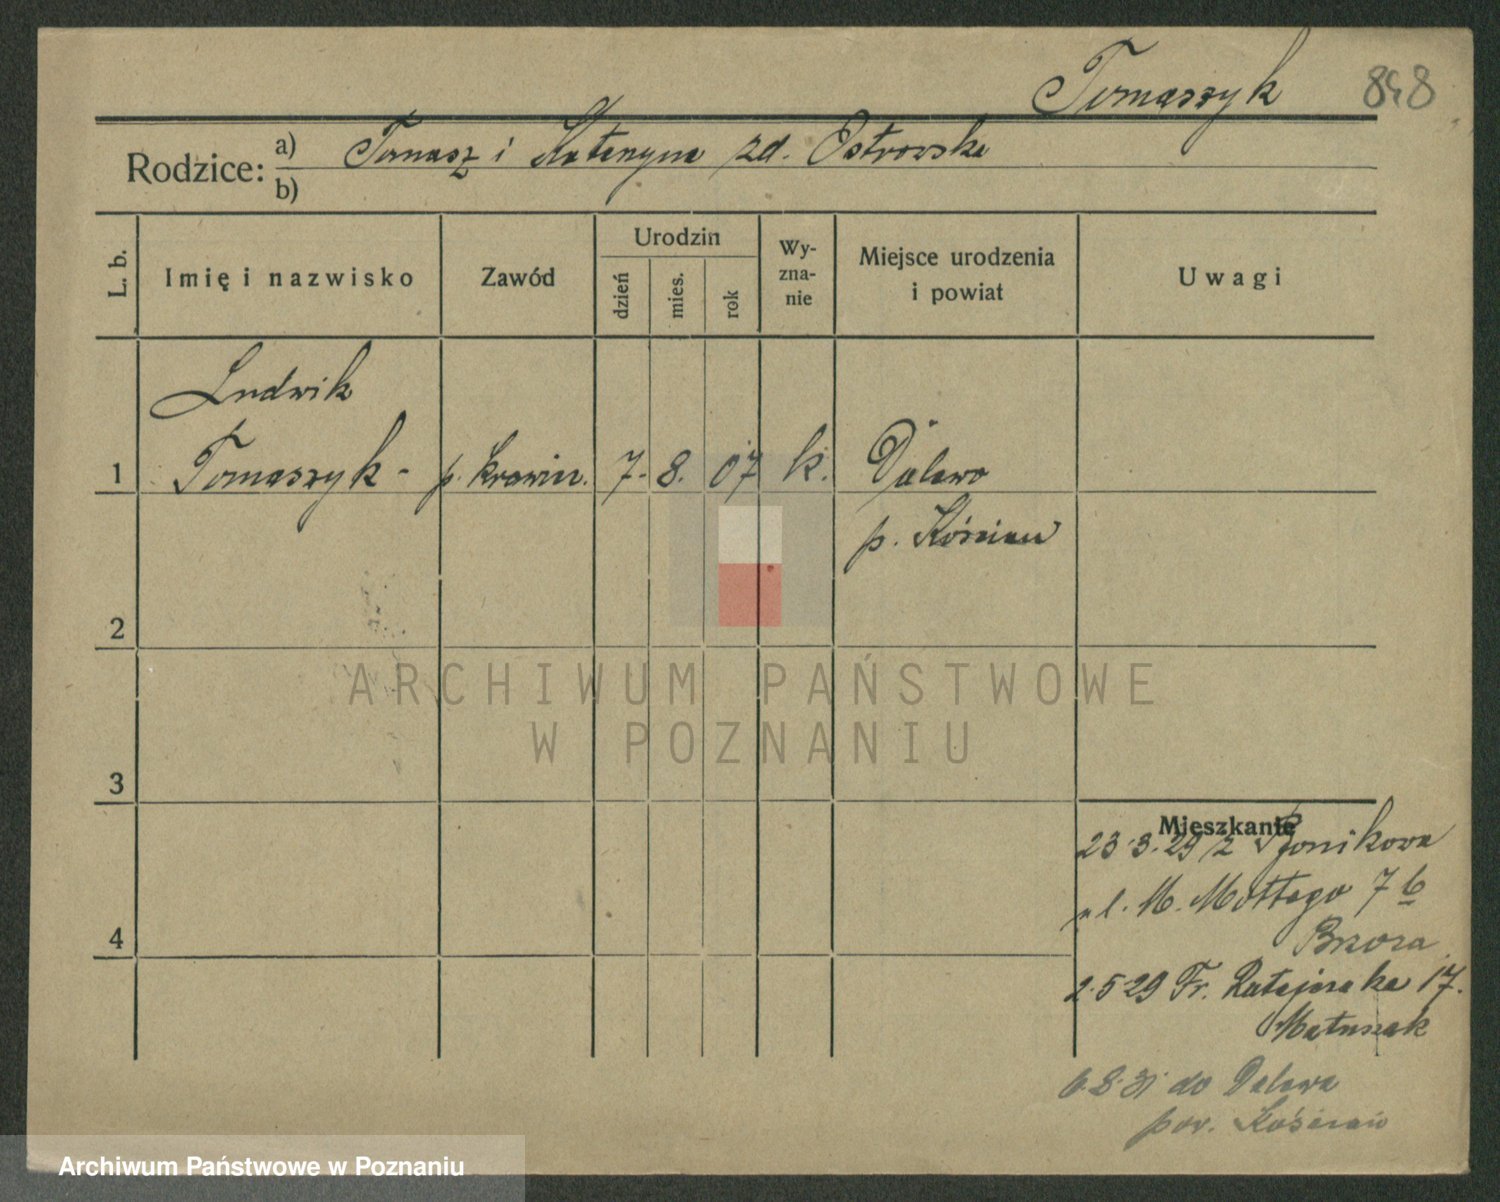 Tomaszyk 848
Rodzice: a) Tomasz i Katarzyna zd. Ostrowska
b)
L. b.
Imię i nazwisko
Zawód
Urodzin
dzień
mies.
rok
Wy-
zna-
nie
Miejsce urodzenia
i powiat
Uwagi
Ludwik
1 Tomaszyk - p. krawiec. 7. 8. 07 k. Dalewo
p. Kościan
2
3
4
ARCHIWUM PAŃSTWOWE
W POZNANIU
Mieszkanie
23.3.29 z
ul. M. Mottego 7 b
Brzoza
2.5.29 Fr. Ratajczaka 17.
Matuszak
6.8.31 do Dalewa
pow. Kościan
Archiwum Państwowe w Poznaniu